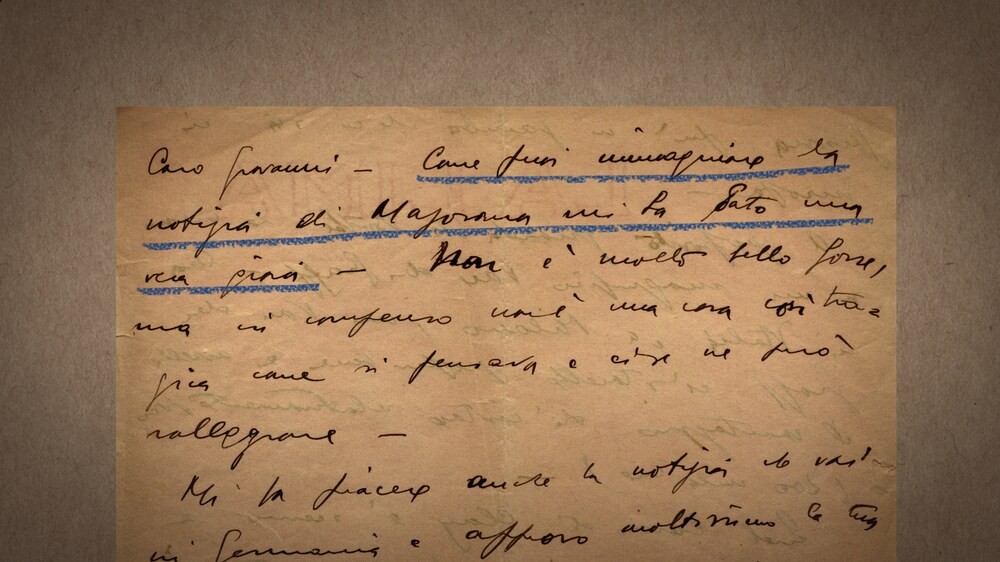 Caro Giovanni – Come puoi immaginare la
notizia di Majorana mi ha dato una
vera gioia – Non è molto bello forse,
ma in compenso non è una cosa così tra=
gica come si pensava e ci se ne può
rallegrare –
Mi fa piacere anche la notizia che vai
in Germania e approvo moltissimo la tua